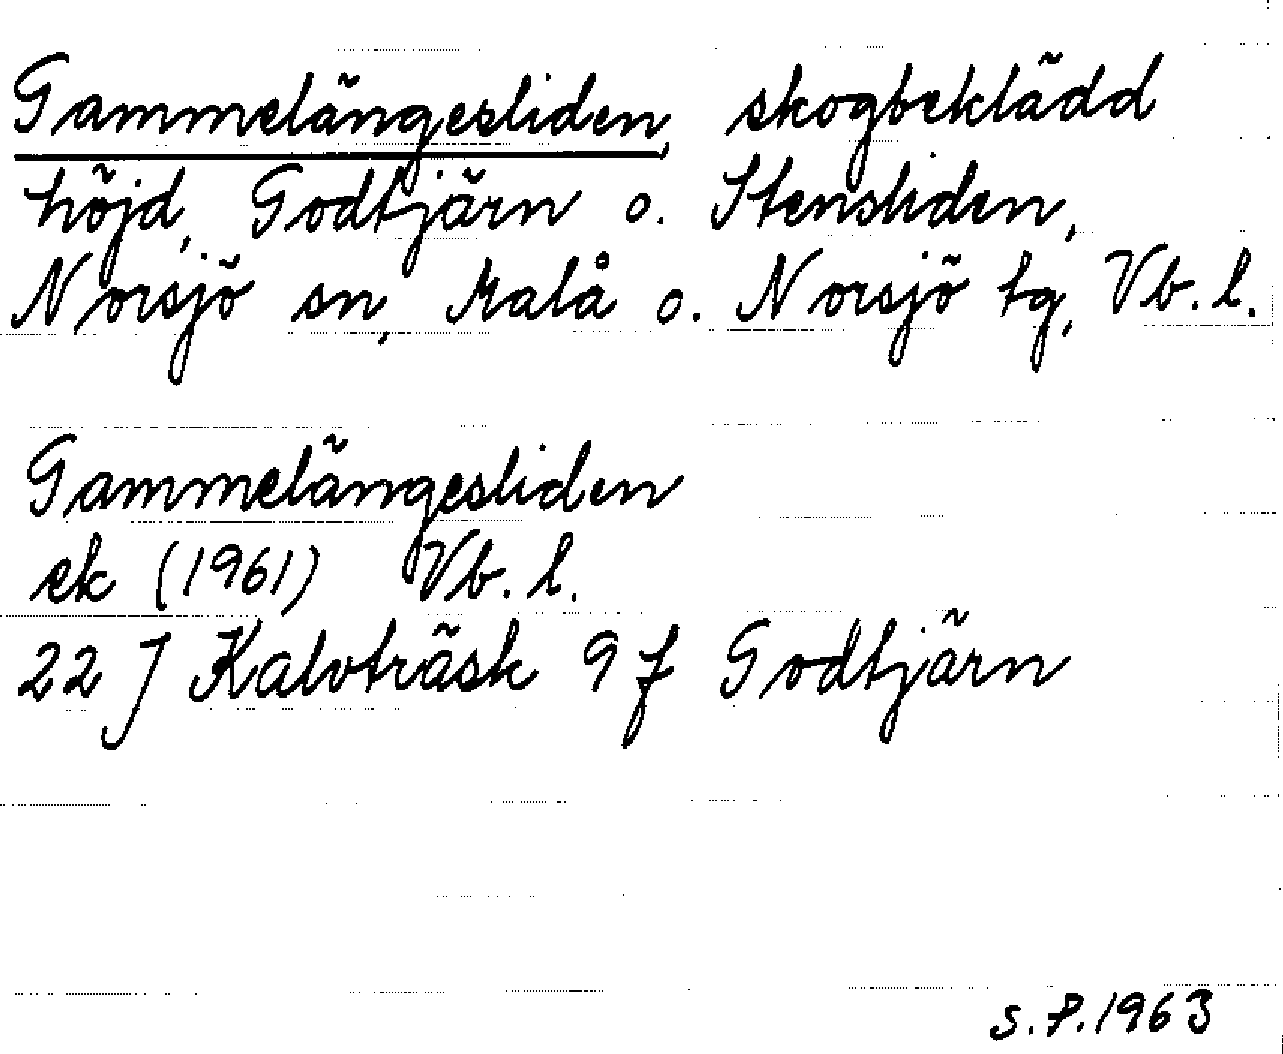 Gammelängesliden, skogbeklädd
höjd, Godtjärn o. Stensliden,
Norsjö sn, Malå o. Norsjö tg, Vb. l.
Gammelängesliden
ek (1961) Vb. l.
22 J Kalvträsk 9 f Godtjärn
S.P. 1963